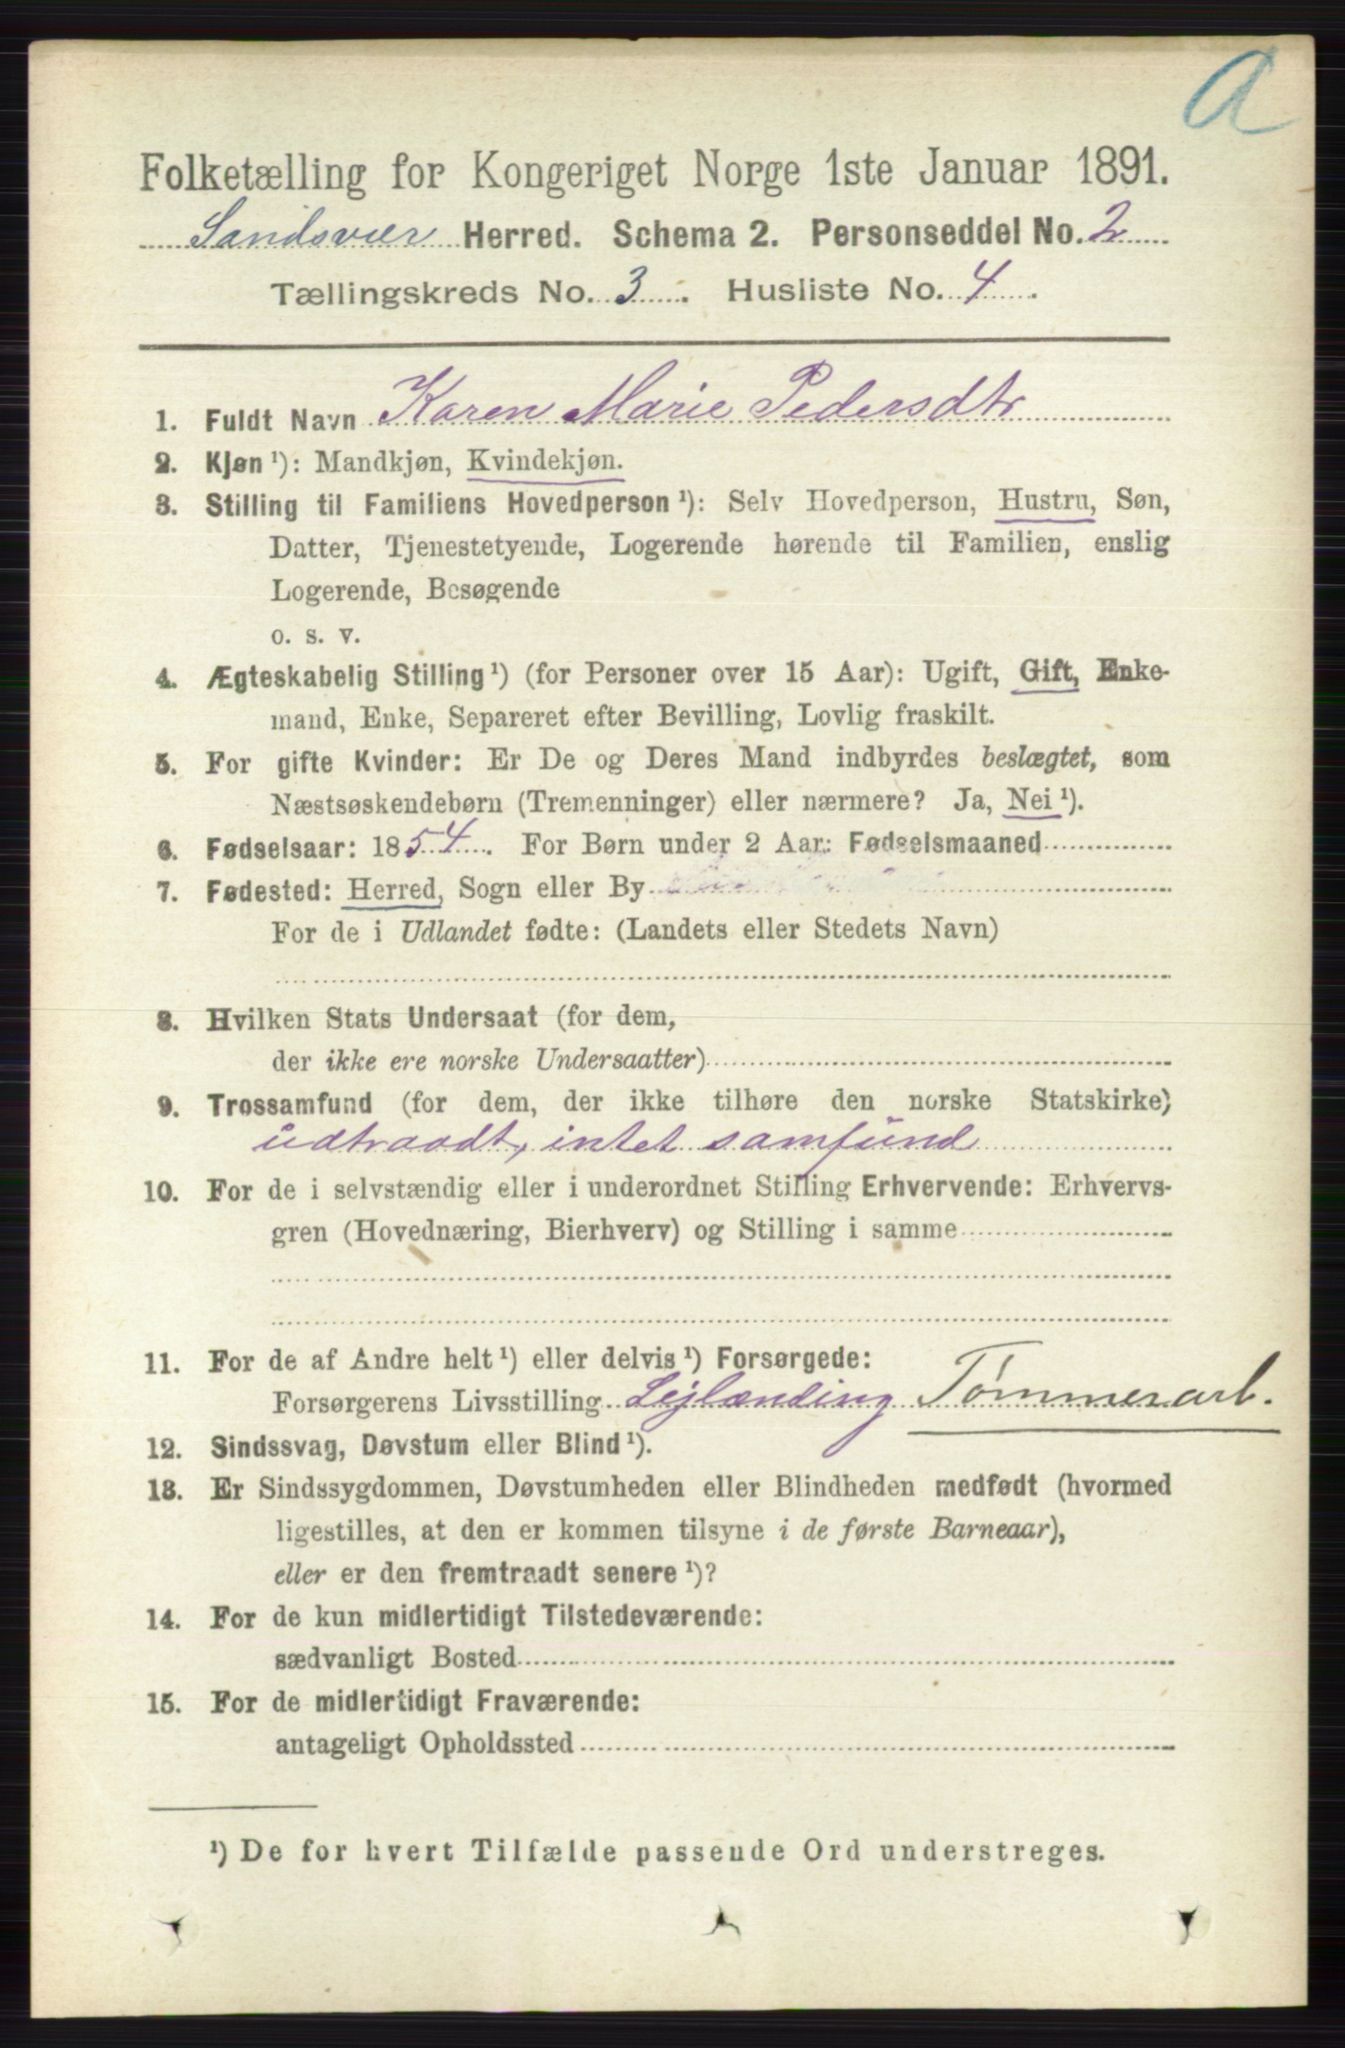 a
Folketælling for Kongeriget Norge 1ste Januar 1891.
Sandsvær Herred. Schema 2. Personseddel No. 2
Tællingskreds No. 3. Husliste No. 4.
1. Fuldt Navn Karen Marie Pedersdtr
2. Kjøn ¹): Mandkjøn, Kvindekjøn.
3. Stilling til Familiens Hovedperson ¹): Selv Hovedperson, Hustru, Søn,
Datter, Tjenestetyende, Logerende hørende til Familien, enslig
Logerende, Besøgende
o. s. v.
4. Ægteskabelig Stilling ¹) (for Personer over 15 Aar): Ugift, Gift, Enke-
mand, Enke, Separeret efter Bevilling, Lovlig fraskilt.
5. For gifte Kvinder: Er De og Deres Mand indbyrdes beslægtet, som
Næstsøskendebørn (Tremenninger) eller nærmere? Ja, Nei ¹).
6. Fødselsaar: 1854. For Børn under 2 Aar: Fødselsmaaned
7. Fødested: Herred, Sogn eller By
For de i Udlandet fødte: (Landets eller Stedets Navn)
8. Hvilken Stats Undersaat (for dem,
der ikke ere norske Undersaatter)
9. Trossamfund (for dem, der ikke tilhøre den norske Statskirke)
udtraadt, intet samfund
10. For de i selvstændig eller i underordnet Stilling Erhvervende: Erhvervs-
gren (Hovednæring, Bierhverv) og Stilling i samme
11. For de af Andre helt ¹) eller delvis ¹) Forsørgede:
Forsørgerens Livsstilling Lejlænding Tømmerarb.
12. Sindssvag, Døvstum eller Blind ¹).
13. Er Sindssygdommen, Døvstumheden eller Blindheden medfødt (hvormed
ligestilles, at den er kommen tilsyne i de første Barneaar),
eller er den fremtraadt senere ¹)?
14. For de kun midlertidigt Tilstedeværende:
sædvanligt Bosted
15. For de midlertidigt Fraværende:
antageligt Opholdssted
¹) De for hvert Tilfælde passende Ord understreges.